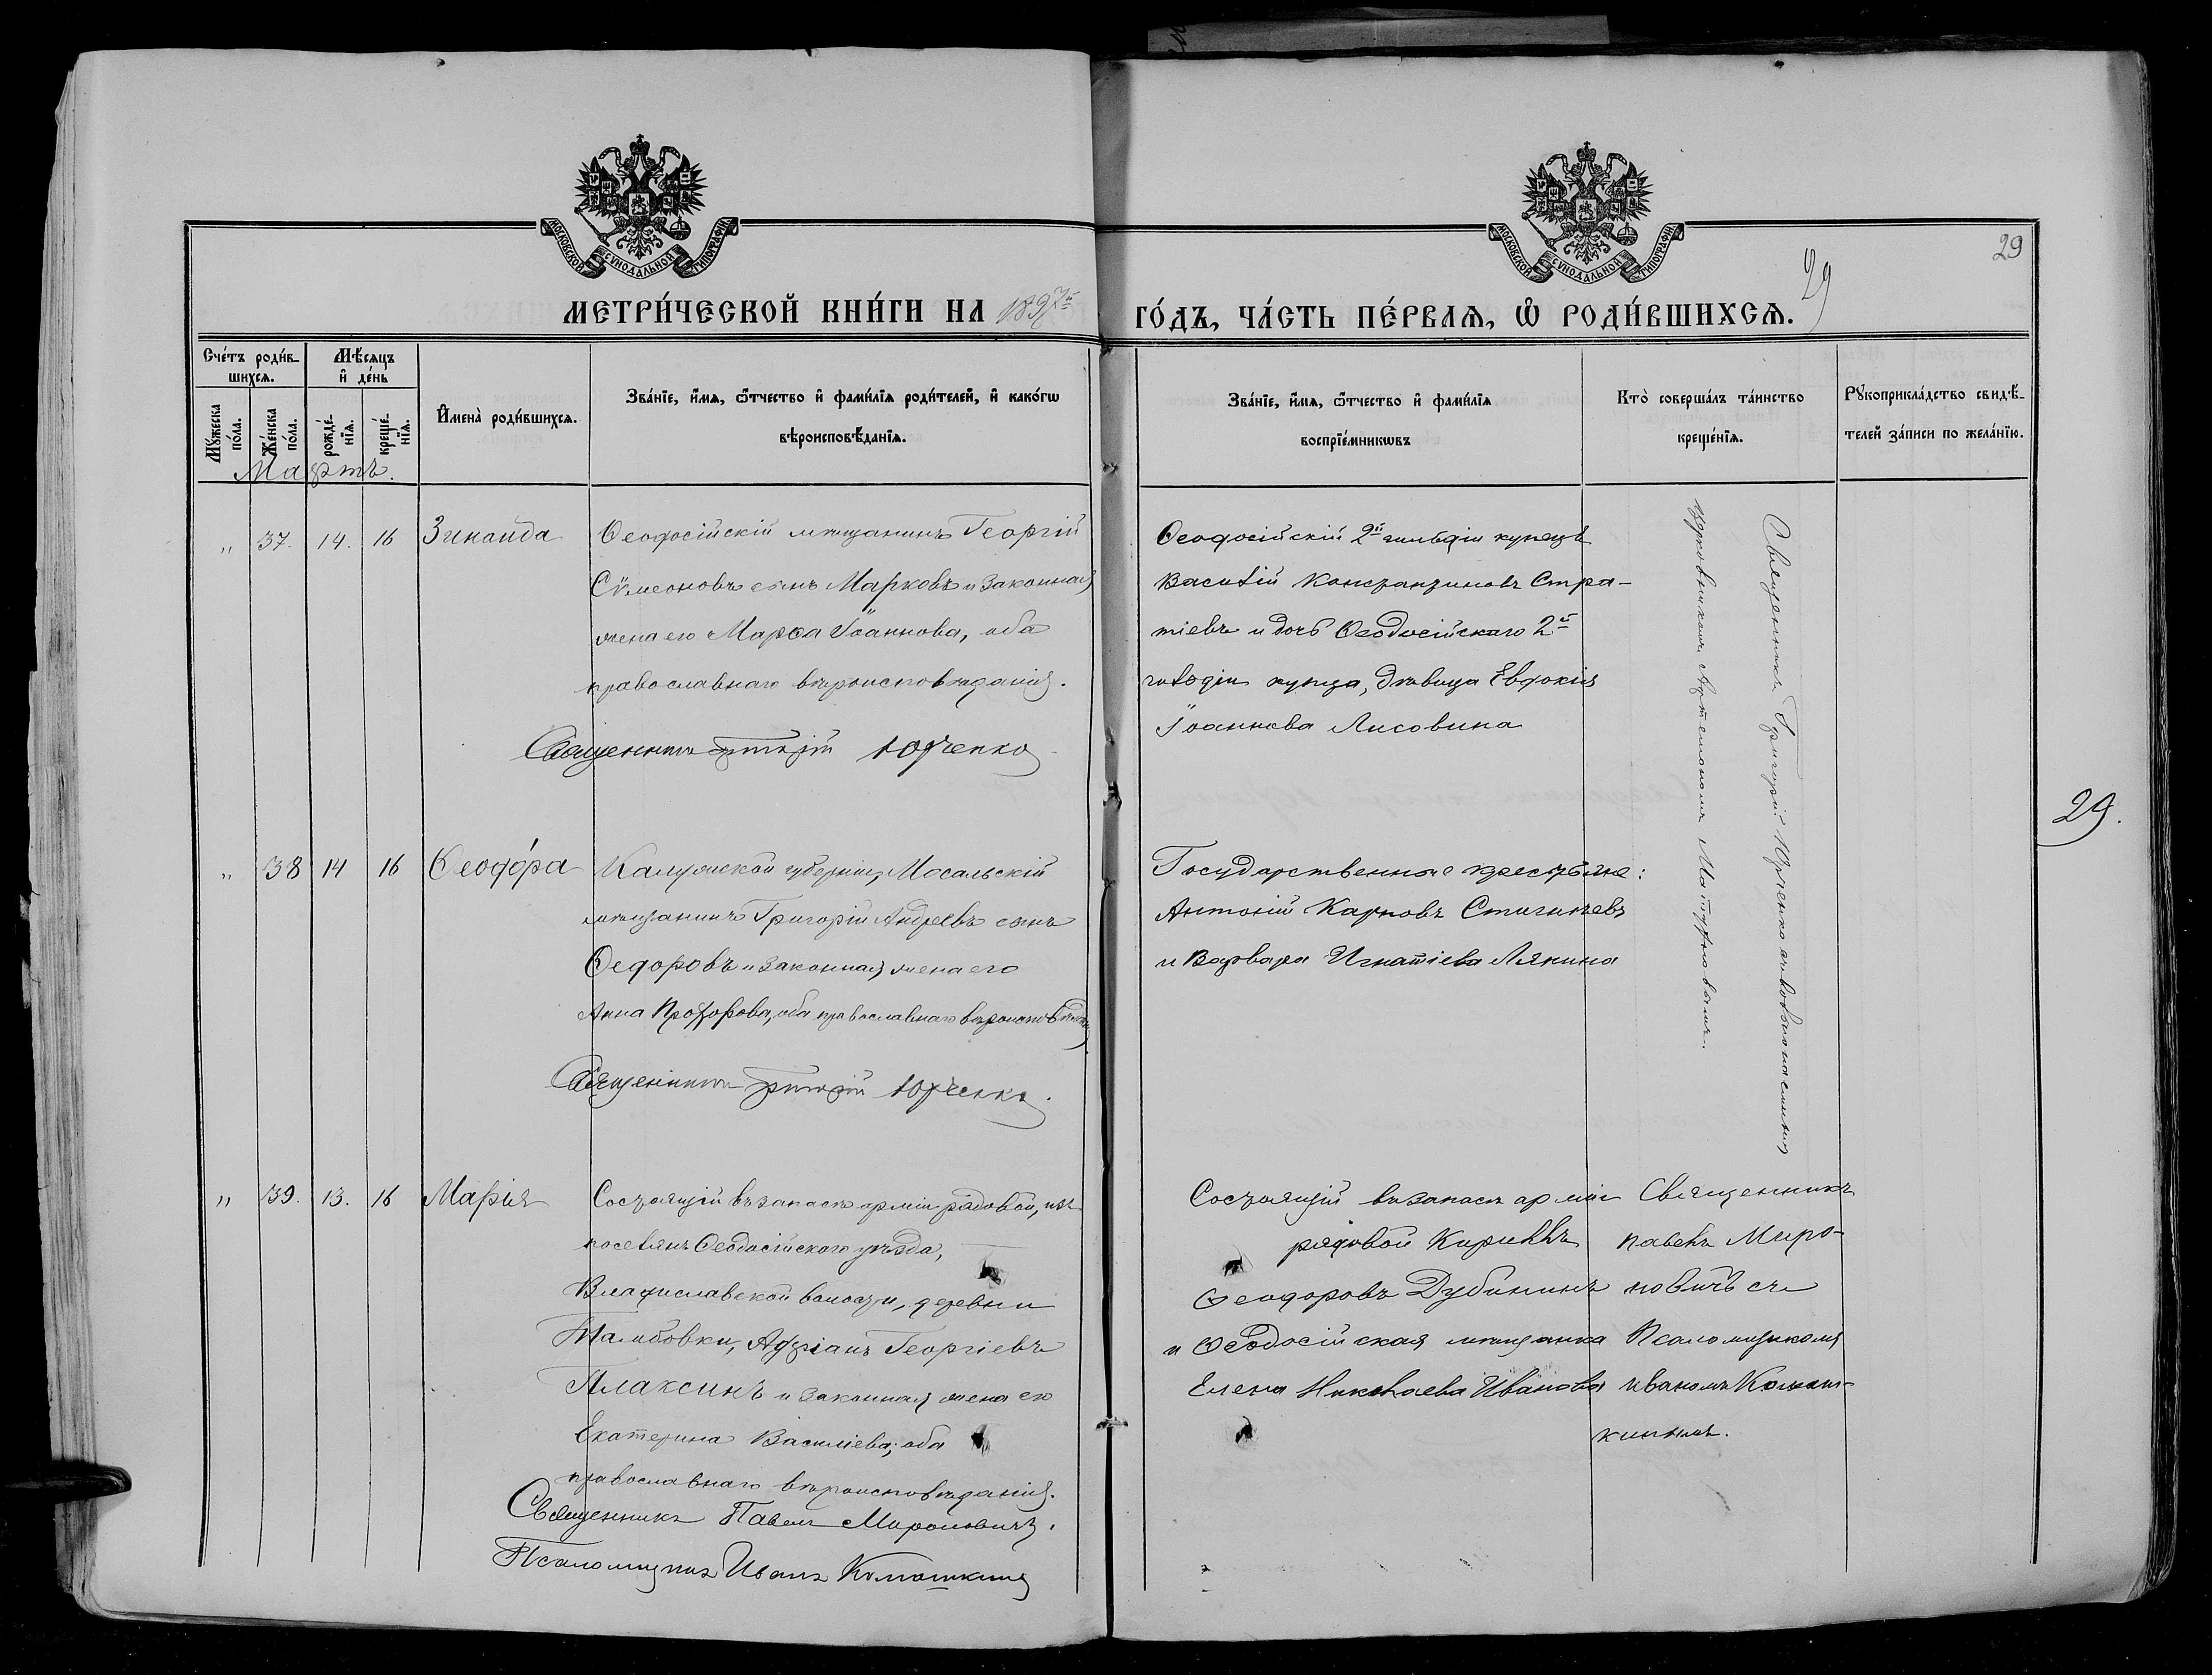 МОСКОВСКОЙ СѴНОДАЛЬНОЙ ТИПОГРАФІИ
МОСКОВСКОЙ СѴНОДАЛЬНОЙ ТИПОГРАФІИ
29
29
МЕТРИ́ЧЕСКОЙ КНИ́ГИ НА 1897й ГО́ДЪ, ЧА́СТЬ ПЕ́РВАѦ, Ѡ҆ РОДИ́ВШИХСѦ.
Сче́тъ роди́в-
шихсѧ.
Мѣ́сѧцъ
и҆ де́нь
Мꙋ́жеска
по́ла.
Же́нска
по́ла.
рожде́-
нїѧ.
креще́-
нїѧ.
И҆мена̀ роди́вшихсѧ.
Зва́нїе, и҆́мѧ, ѻ҆́тчество и҆ фами́лїѧ роди́телей, и҆ како́гѡ
вѣроисповѣ́данїѧ.
Зва́нїе, и҆́мѧ, ѻ҆́тчество и҆ фами́лїѧ
воспрїе́мникѡвъ
Кто̀ соверша́лъ та́инство
креще́нїѧ.
Рꙋкоприкла́дство свидѣ́-
телей за́писи по жела́нїю.
Мартъ.
„ 37. 14. 16 Зинаида
Ѳеодосійскій мѣщанинъ Георгій
Сѵмеоновъ сынъ Марковъ и законная
жена его Марѳа Іоаннова, оба
православнаго вѣроисповѣданія.
Священникъ Григорій Юрченко
Ѳеодосійскій 2й гильдіи купецъ
Василій Константиновъ Стра-
тіевъ и дочь Ѳеодосійскаго 2й
гильдіи купца, дѣвица Евдокія
Іоаннова Лисовина
Священникъ Григорій Юрченко
29.
„ 38 14 16 Ѳеодо́ра
Калужской губерніи, Мосальскій
мѣщанинъ Григорій Андреевъ сынъ
Ѳедоровъ и законная жена его
Анна Прохорова, оба православнаго вѣроисповѣданія.
Священникъ Григорій Юрченко.
Государственные крестьяне:
Антоній Карповъ
и Варвара Игнатіева Лякина
„ 39. 13. 16 Марія
Состоящій въ запасѣ арміи рядовой, изъ
поселянъ Ѳеодосійскаго уѣзда,
Владиславской волости, деревни
Тамбовки, Адріанъ Георгіевъ
Плаксинъ и законная жена его
Екатерина Василіева, оба
православнаго вѣроисповѣданія.
Священникъ Павелъ Мироновичъ.
Псаломщикъ Иванъ
Состоящій въ запасѣ арміи
рядовой Кириллъ
Ѳеодоровъ Дубининъ
и Ѳеодосійская мѣщанка
Елена Николаева Иванова
Священникъ
Павелъ Миро-
новичъ съ
Псаломщикомъ
Иваномъ